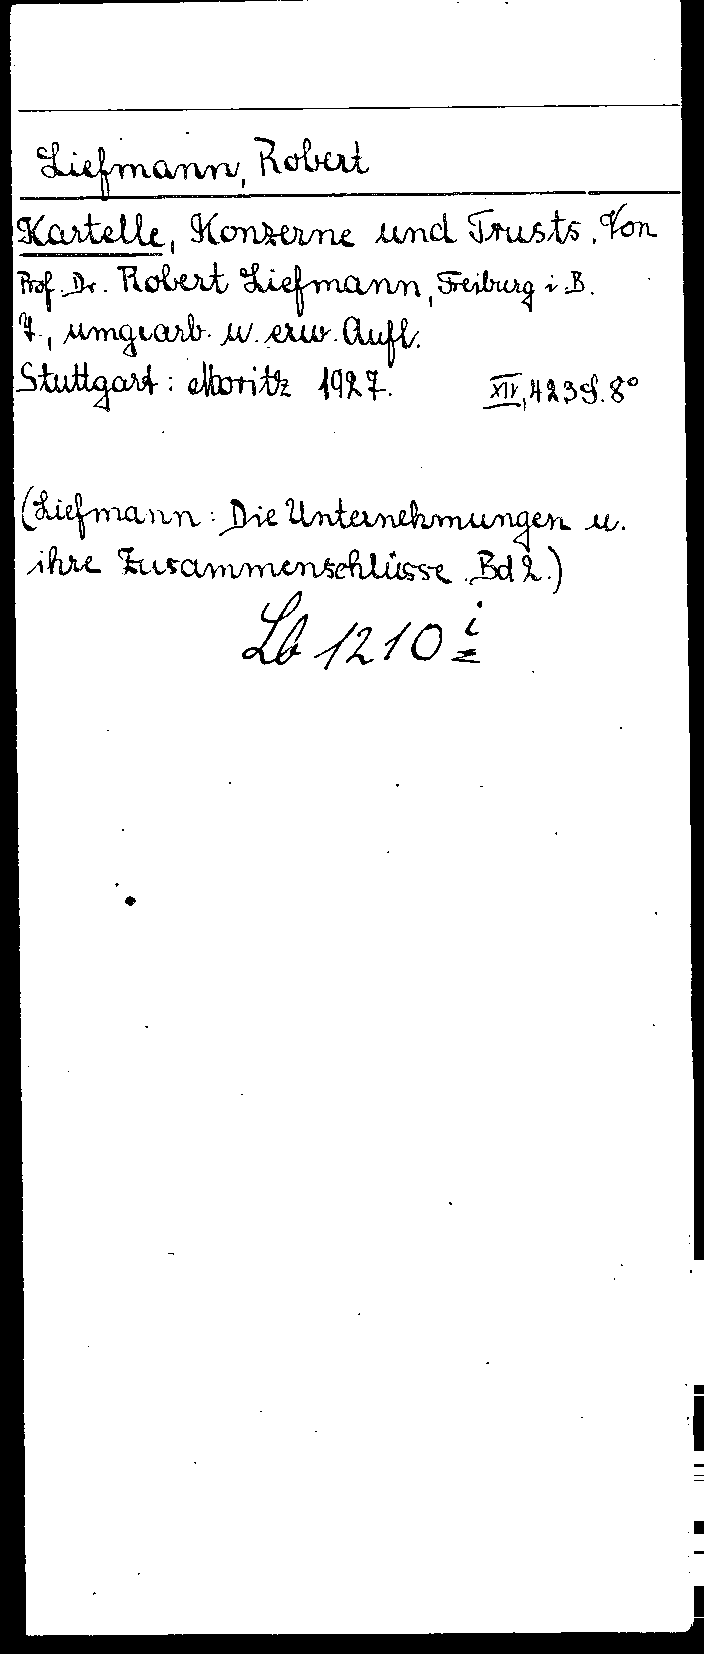 Liefmann, Robert
Kartelle, Konzerne und Trusts. Von
Prof. Dr. Robert Liefmann, Freiburg i. B.
7., umgearb. u. erw. Aufl.
Stuttgart: Moritz 1927. XIV, 423 S. 8°
(Liefmann: Die Unternehmungen u.
ihre Zusammenschlüsse. Bd 2.)
Lb 1210 i